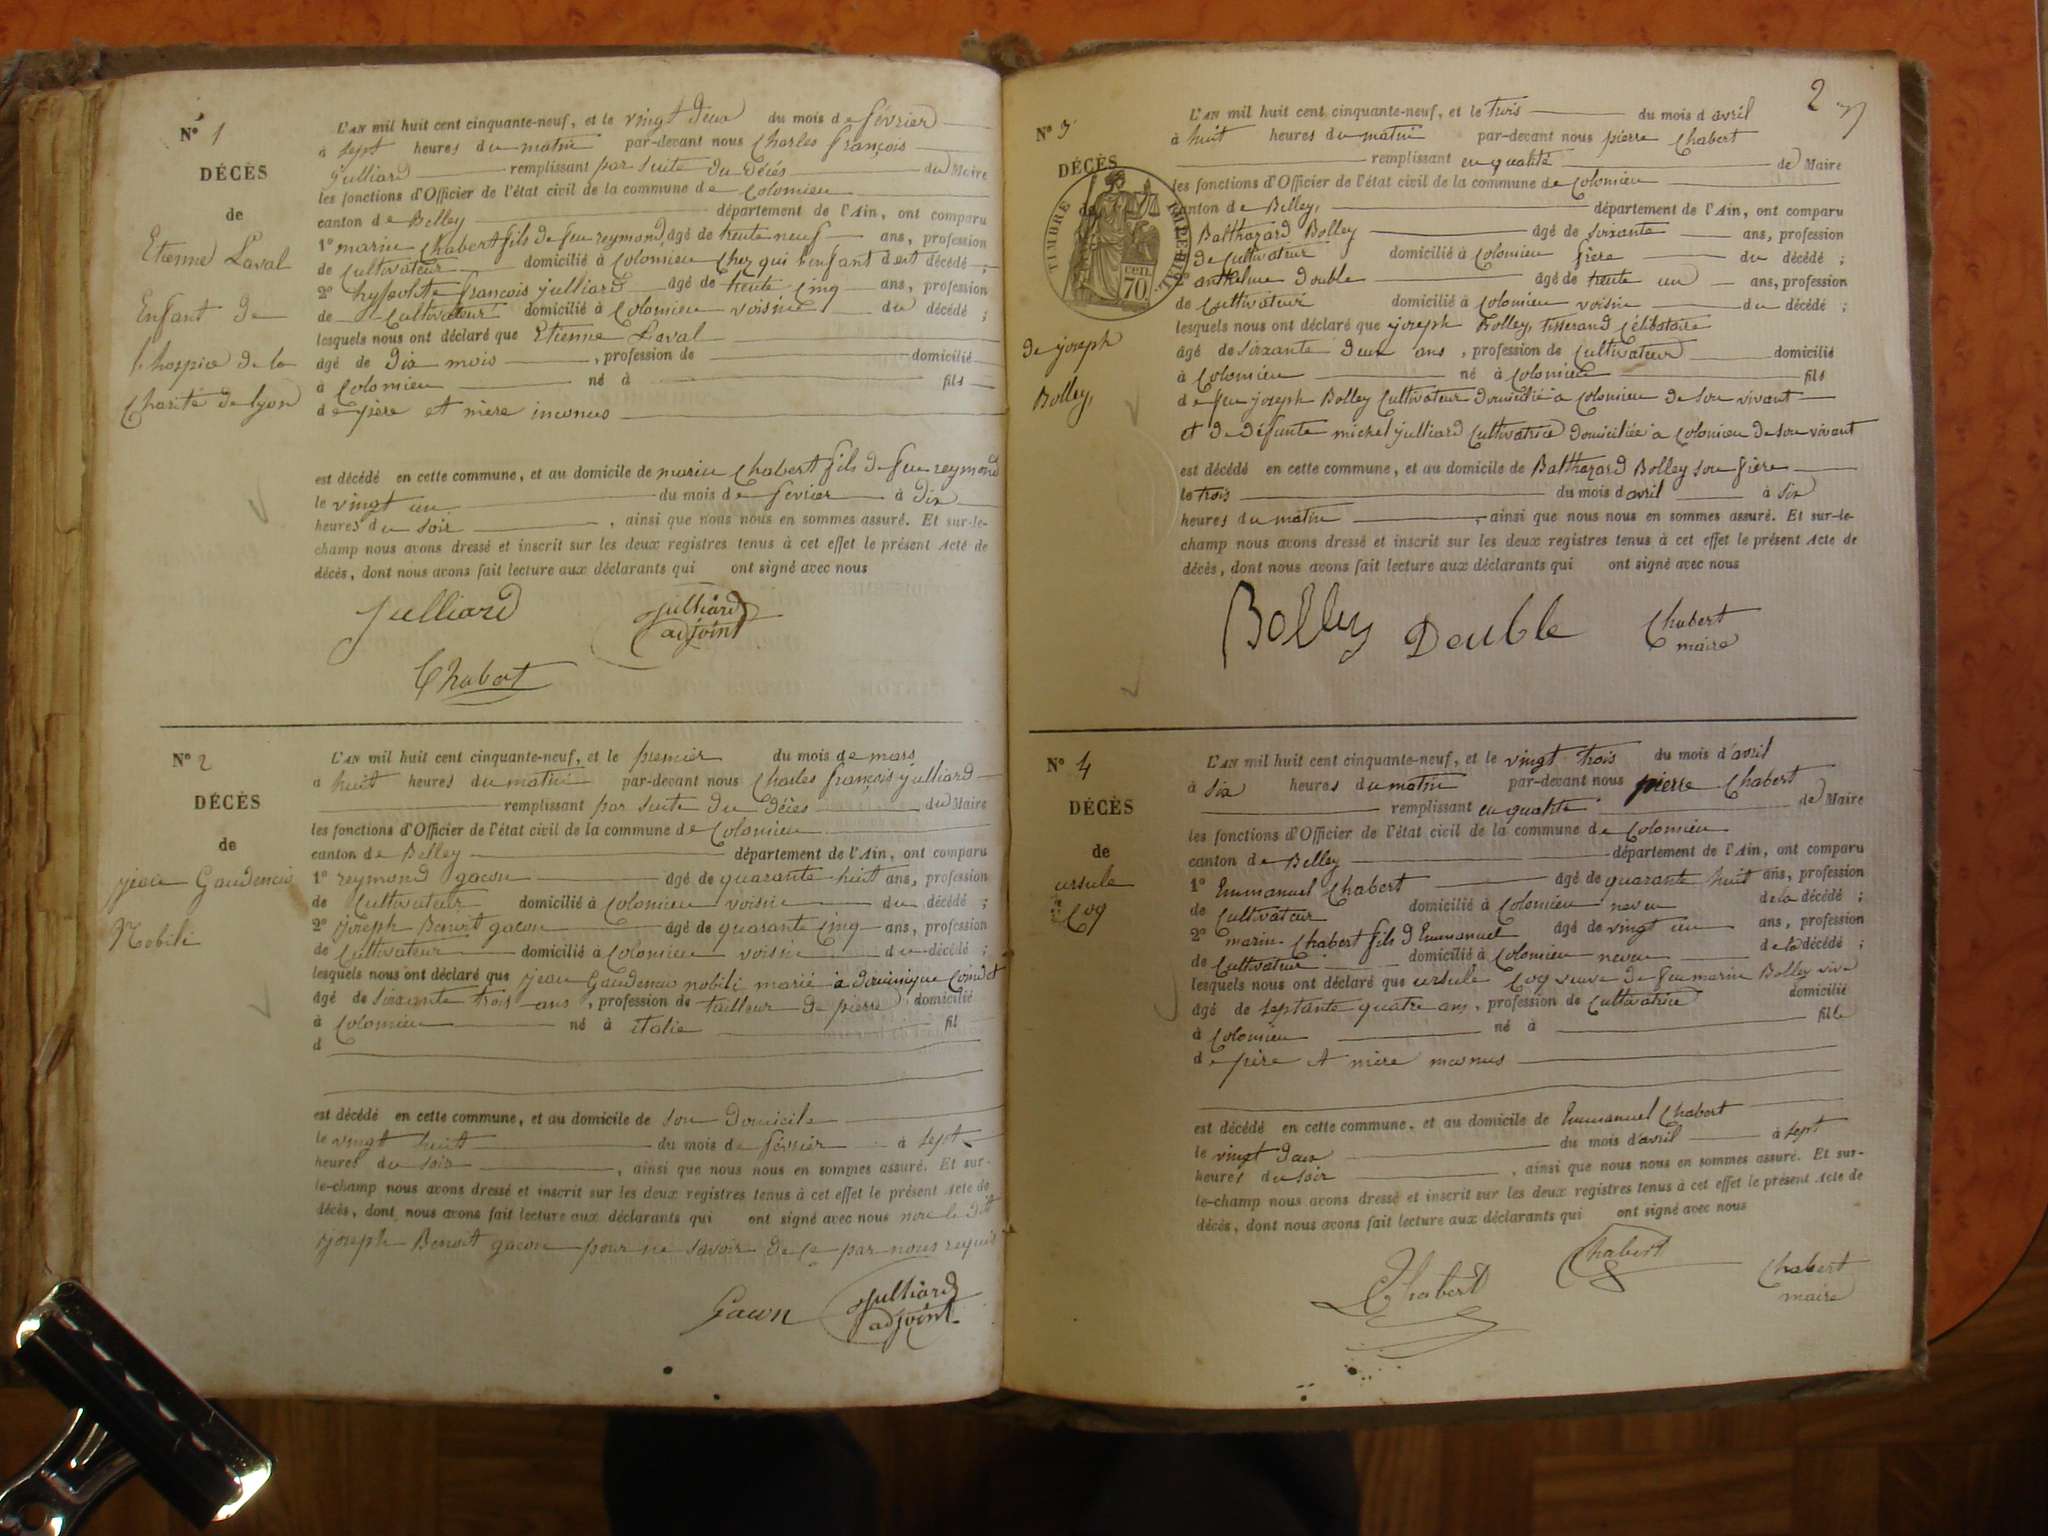 N° 1
DÉCÈS
de
Etienne Laval
Enfant de
l'hospice de la
Charité de lyon
L'AN mil huit cent cinquante-neuf, et le vingt deux du mois de février
à sept heures du matin par-devant nous Charles françois
Julliard remplissant par suite du décés du Maire
les fonctions d'Officier de l'état civil de la commune de Colomieu
canton de Belley département de l'Ain, ont comparu
1° marin Chabert fils de feu reymond âgé de trente neuf ans, profession
de Cultivateur domicilié à Colomieu Chez qui l'enfant est décédé ;
2° hypolite françois julliard âgé de trente cinq ans, profession
de Cultivateur domicilié à Colomieu voisin du décédé ;
lesquels nous ont déclaré que Etienne Laval
âgé de dix mois , profession de domicilié
à Colomieu né à fils
de père et mère inconus
est décédé en cette commune, et au domicile de marin Chabert fils de feu reymond
le vingt un du mois de février à dix
heures du soir , ainsi que nous nous en sommes assuré. Et sur-le-
champ nous avons dressé et inscrit sur les deux registres tenus à cet effet le présent Acte de
décès, dont nous avons fait lecture aux déclarants qui ont signé avec nous
Julliard
julliard
adjoint
Chabert
N° 2
DÉCÈS
de
jean Gaudencio
Nobili
L'AN mil huit cent cinquante-neuf, et le premier du mois de mars
à huit heures du matin par-devant nous Charles françois julliard
remplissant par suite du décés du Maire
les fonctions d'Officier de l'état civil de la commune de Colomieu
canton de Belley département de l'Ain, ont comparu
1° reymond gacon âgé de quarante huit ans, profession
de Cultivateur domicilié à Colomieu voisin du décédé ;
2° joseph Benoit gacon âgé de quarante cinq ans, profession
de Cultivateur domicilié à Colomieu voisin du décédé ;
lesquels nous ont déclaré que jean Gaudencio nobili marié à dominique
âgé de soixante trois ans , profession de tailleur de pierre domicilié
à Colomieu né à italie fil
d
est décédé en cette commune, et au domicile de son domicile
le vingt huit du mois de février à sept
heures du soir , ainsi que nous nous en sommes assuré. Et sur-
le-champ nous avons dressé et inscrit sur les deux registres tenus à cet effet le présent Acte de
décès, dont nous avons fait lecture aux déclarants qui ont signé avec nous non le dit
joseph Benoit gacon pour ne savoir de ce par nous requis
Gacon
julliard
adjoint
2
N° 3
DÉCÈS
de
TIMBRE IMPERIAL
CEN.
70
de joseph
Bolley
L'AN mil huit cent cinquante-neuf, et le trois du mois d'avril
à huit heures du matin par-devant nous pierre Chabert
remplissant en qualité de Maire
les fonctions d'Officier de l'état civil de la commune de Colomieu
canton de Belley département de l'Ain, ont comparu
Balthazard Bolley âgé de soixante ans, profession
de Cultivateur domicilié à Colomieu frère du décédé ;
2° anthelme double âgé de trente un ans, profession
de Cultivateur domicilié à Colomieu voisin du décédé ;
lesquels nous ont déclaré que joseph Bolley, tisserand Célibataire
âgé de soixante deux ans , profession de Cultivateur domicilié
à Colomieu né à Colomieu fils
de feu joseph Bolley Cultivateur domicilié à Colomieu de son vivant
et de défunte michel julliard Cultivatrice domiciliée à Colomieu de son vivant
est décédé en cette commune, et au domicile de Balthazard Bolley son frère
le trois du mois d'avril à six
heures du matin , ainsi que nous nous en sommes assuré. Et sur-le-
champ nous avons dressé et inscrit sur les deux registres tenus à cet effet le présent Acte de
décès, dont nous avons fait lecture aux déclarants qui ont signé avec nous
Bolley Double Chabert
maire
N° 4
DÉCÈS
de
ursule
Coq
L'AN mil huit cent cinquante-neuf, et le vingt trois du mois d'avril
à six heures du matin par-devant nous pierre Chabert
remplissant en qualité de Maire
les fonctions d'Officier de l'état civil de la commune de Colomieu
canton de Belley département de l'Ain, ont comparu
1° Emmanuel Chabert âgé de quarante huit ans, profession
de Cultivateur domicilié à Colomieu neveu de la décédé ;
2° marin Chabert fils d'Emmanuel âgé de vingt un ans, profession
de Cultivateur domicilié à Colomieu neveu de la décédé ;
lesquels nous ont déclaré que ursule Coq veuve de feu marin Bolley
âgé de septante quatre ans , profession de Cultivatrice domicilié
à Colomieu né à fille
de père et mère inconus
est décédé en cette commune, et au domicile de Emmanuel Chabert
le vingt deux du mois d'avril à sept
heures du soir , ainsi que nous nous en sommes assuré. Et sur-
le-champ nous avons dressé et inscrit sur les deux registres tenus à cet effet le présent Acte de
décès, dont nous avons fait lecture aux déclarants qui ont signé avec nous
Chabert Chabert Chabert
maire